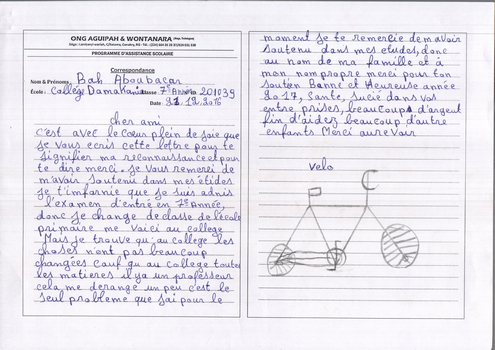 ONG AGUIPAH & WONTANARA
PROGRAMME D'ASSISTANCE SCOLAIRE
Correspondance
Nom & Prénoms: Bah Aboubacar
École: Collège Damakania Classe 7e Année ID 201039
Date: 21.12.2016
cher ami
C'est avec le cœur plein de joie que
je vous ecris cette lettre pour te
signifier ma reconnaissance et pour
te dire merci. Je vous remerci de
m'avoir soutenu dans mes étides
je t'imfornie que je suis admis
l'examen d'entré en 7e Année,
donc je change de classe de l'école
primaire me voici au collège
Mais je trouve qu'au college les
choses n'ont pas beaucoup
changées cauf qu'au college toute
les matieres il ya un professeur
cela me derange un peu c'est le
seul probleme que j'ai pour le
moment je te remercie de m'avoir
soutenu dans mes etudes, donc
au nom de ma famille et à
mon nom propre merci pour ton
soutien Bonne et Heureuse année
2017, Santé, sucié dans vos
entre prises, beaucoup d'argent
fin d'aidez beaucoup d'autre
enfants Merci au revoir
velo